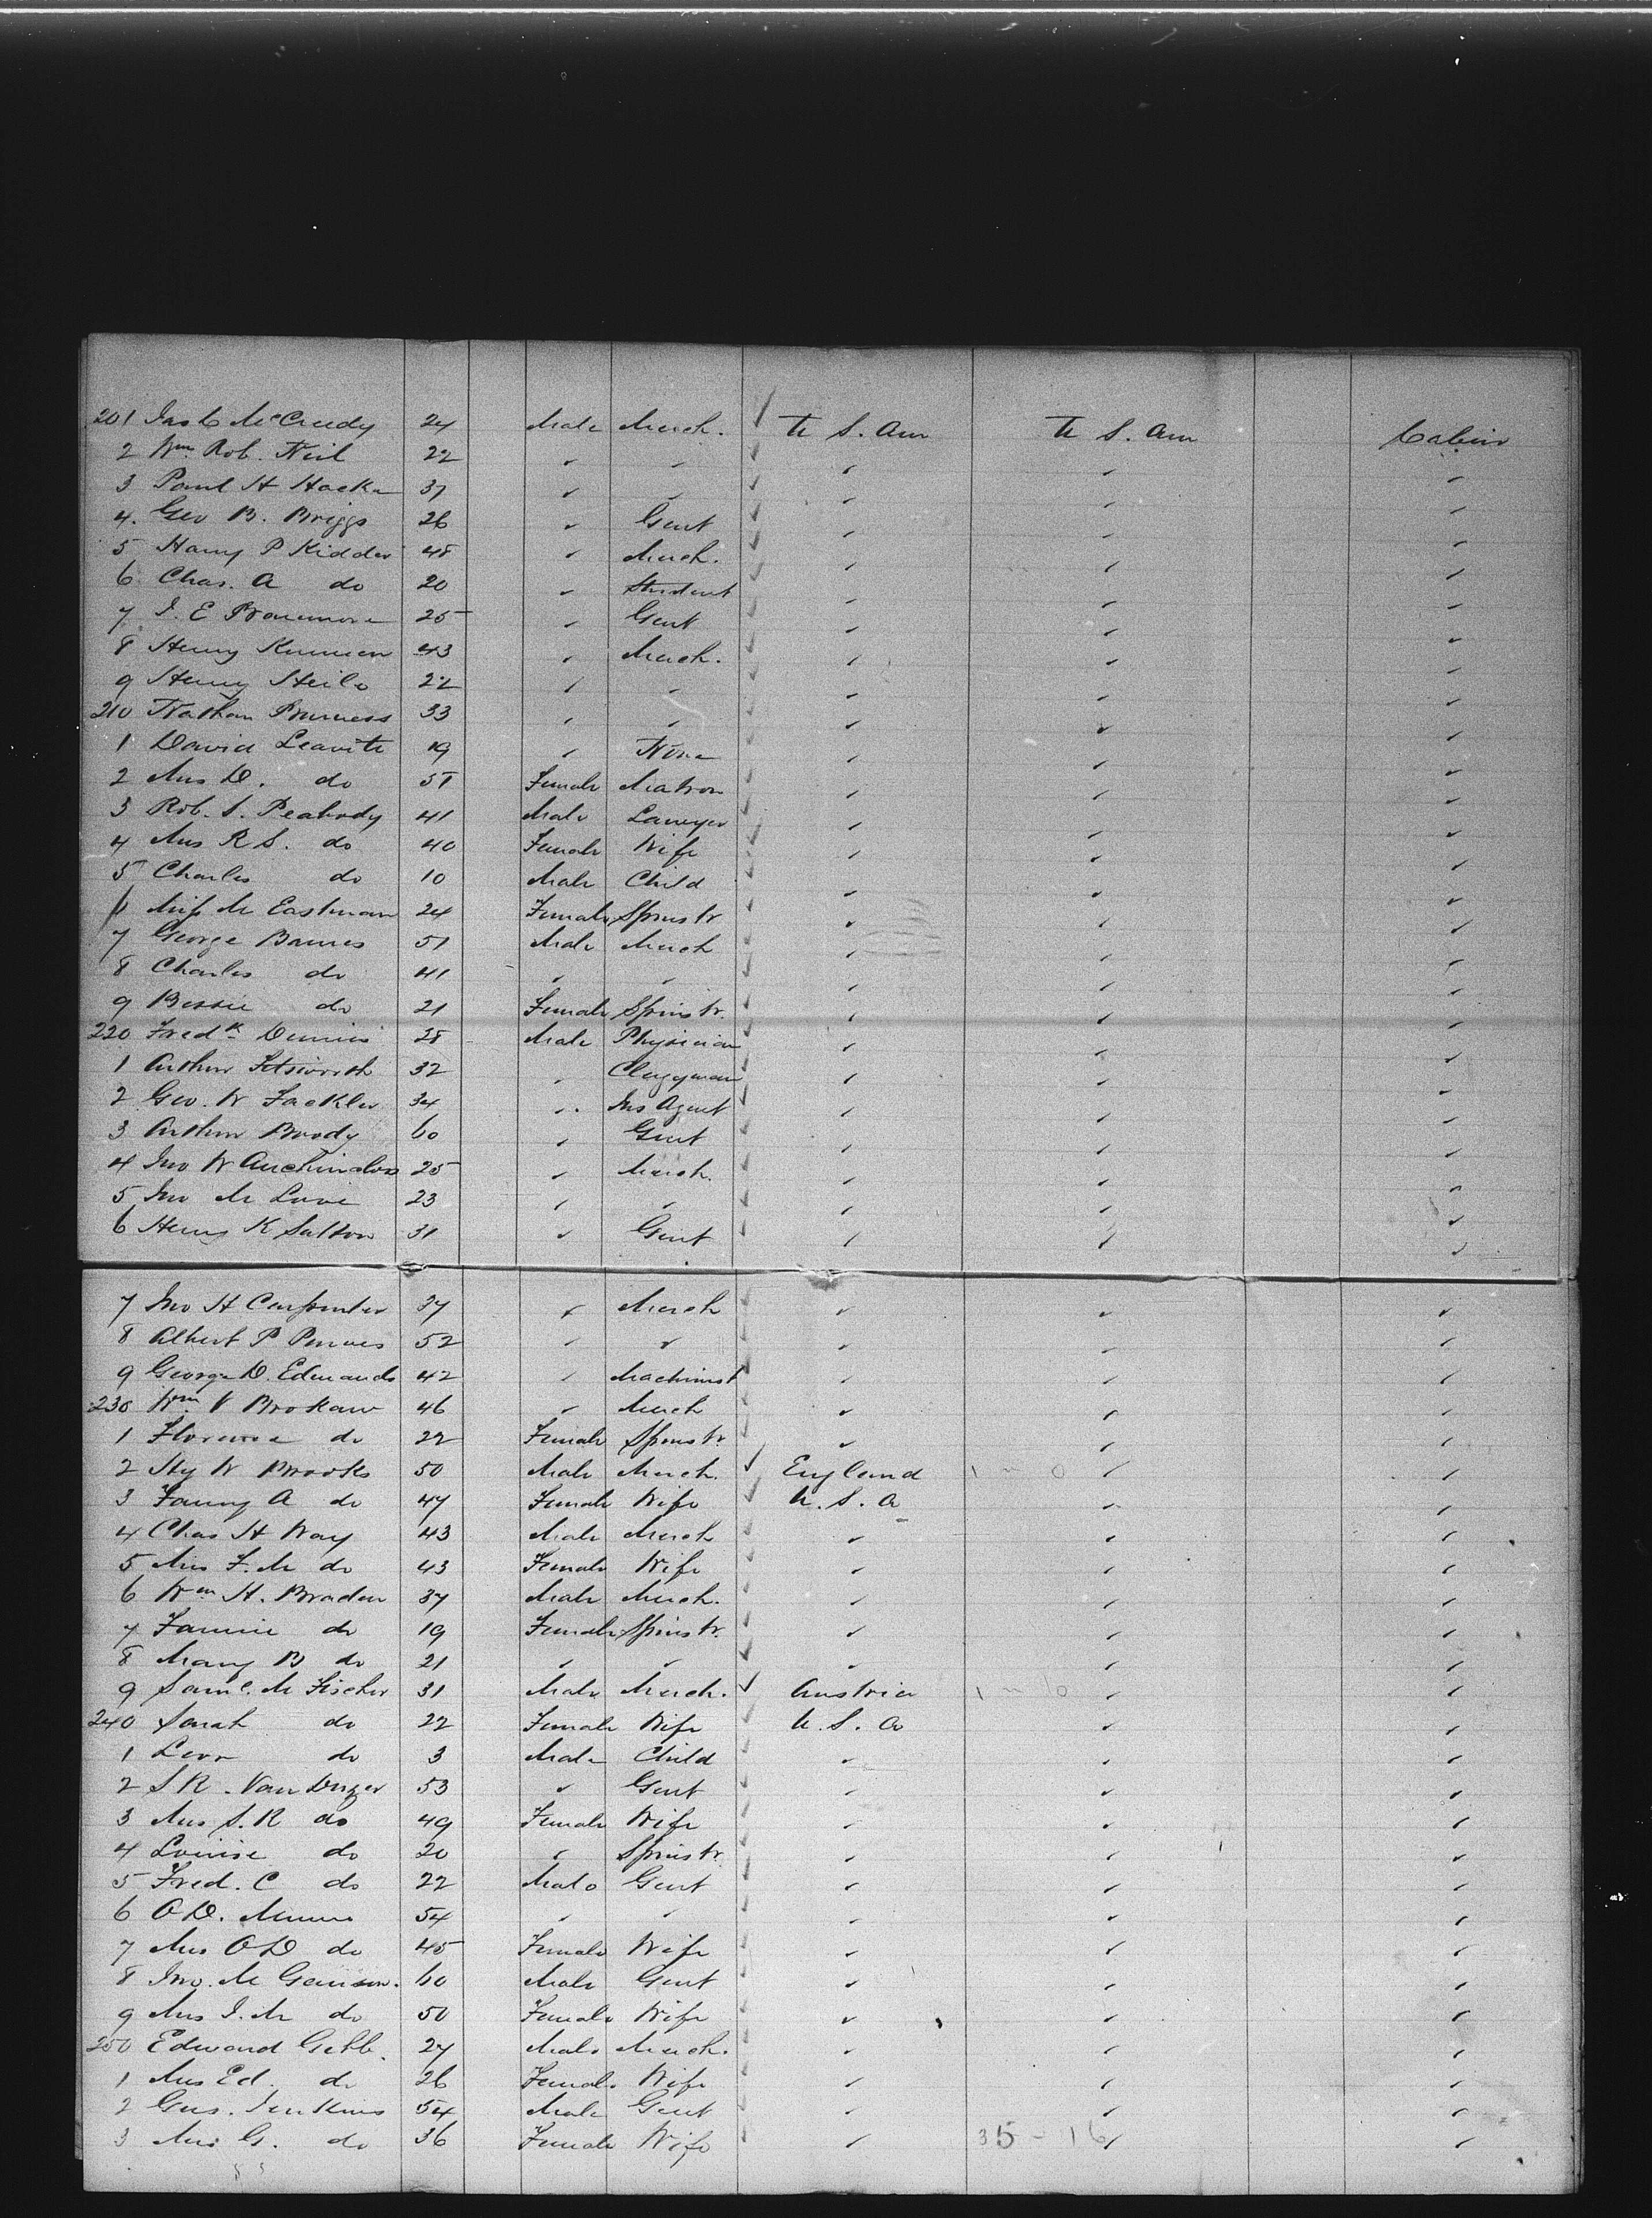 201 Jas C McCreedy 24 Male Merch. U S. Am U S. Am Cabin
2 Wm Rob. Neil 22 " "
3 Paul H Hacke 37 " "
4. Geo B. Briggs 26 " Gent
5 Harry P Kidder 48 " Merch.
6 Chas. A do 20 " Student
7 25 " Gent
8 Henry 43 " Merch.
9 Henry Heilo 22 " "
210 Nathan 33 " "
1 David Leavitt 19 " None
2 Mrs D. do Female Matron
3 Rob. S. Peabody 41 Male Lawyer
4 Mrs R S. do 40 Female Wife
5 Charles do 10 Male Child
6 Miss M Eastman 24 Female Spinstr
7 George Barnes 51 Male Merch
8 Charles do 41 " "
9 Bessie do 21 Female Spinstr.
220 Fredk Dennis 28 Male Physician
1 Arthur 32 " Clergyman
2 Geo. W Fackler 34 " Ins Agent
3 Arthur Brody 60 " Gent
4 Jno W Auchincloss 25 " Merch.
5 Jno M Lane 23 " "
6 Henry K Salton 31 " Gent
7 Jno H Carpenter 37 " Merch
8 Albert P 52 " "
9 George D. Edmands 42 " Machinist
230 Wm V Brokaw 46 " Merch
1 Florence do 22 Female Spinstr.
2 Hy W Brooks 50 Male Merch. England
3 Fanny A do 47 Female Wife U. S. A
4 Chas H Way 43 Male Merch
5 Mrs F. M do 43 Female Wife
6 Wm H. Braden 37 Male Merch.
7 Fannie do 19 Female Spinstr.
8 Mary B do 21 " "
9 Saml. M Fischer 31 Male Merch. Austria
240 Sarah do 22 Female Wife U. S. A
1 Leon do 3 Male Child
2 S R. Van Duzer 53 " Gent
3 Mrs S. R do 49 Female Wife
4 Louise do 20 " Spinstr
5 Fred. C do 22 Male Gent
6 O D. Munn 54 " "
7 Mrs O D do 45 Female Wife
8 Jno. M Garrison. 60 Male Gent
9 Mrs J. M do 50 Female Wife
250 Edward Gebb. 27 Male Merch.
1 Mrs Ed. do 26 Female Wife
2 Gus. Jenkins 54 Male Gent
3 Mrs G. do 36 Female Wife 35 - 16